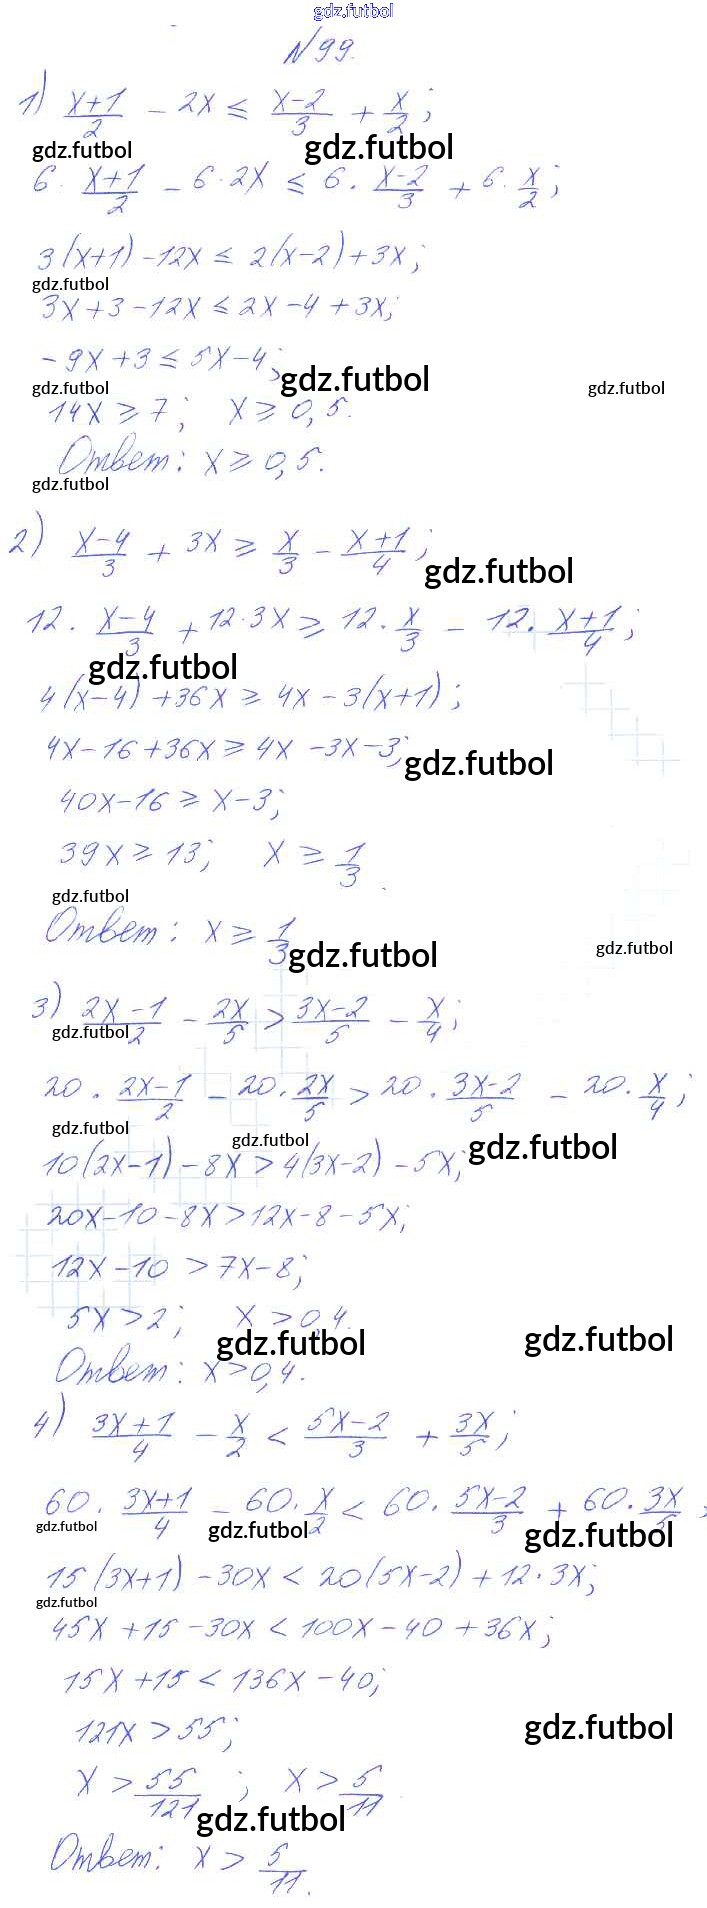 gdz.futbol
№99.
1) (x+1)/2 - 2x ≤ (x-2)/3 + x/2;
gdz.futbol gdz.futbol
6·(x+1)/2 - 6·2x ≤ 6·(x-2)/3 + 6·x/2;
3(x+1)-12x ≤ 2(x-2)+3x;
gdz.futbol
3x+3-12x ≤ 2x-4+3x;
-9x+3 ≤ 5x-4;
gdz.futbol gdz.futbol gdz.futbol
14x ≥ 7; x ≥ 0,5.
Ответ: x ≥ 0,5.
gdz.futbol
2) (x-4)/3 + 3x ≥ x/3 - (x+1)/4;
gdz.futbol
12·(x-4)/3 + 12·3x ≥ 12·x/3 - 12·(x+1)/4;
gdz.futbol
4(x-4)+36x ≥ 4x-3(x+1);
4x-16+36x ≥ 4x-3x-3;
gdz.futbol
40x-16 ≥ x-3;
39x ≥ 13; x ≥ 1/3.
gdz.futbol
Ответ: x ≥ 1/3
gdz.futbol gdz.futbol
3) (2x-1)/2 - 2x/5 > (3x-2)/5 - x/4;
gdz.futbol
20·(2x-1)/2 - 20·2x/5 > 20·(3x-2)/5 - 20·x/4;
gdz.futbol gdz.futbol gdz.futbol
10(2x-1)-8x > 4(3x-2)-5x;
20x-10-8x > 12x-8-5x;
12x-10 > 7x-8;
5x > 2; x > 0,4.
gdz.futbol gdz.futbol
Ответ: x > 0,4.
4) (3x+1)/4 - x/2 < (5x-2)/3 + 3x/5;
60·(3x+1)/4 - 60·x/2 < 60·(5x-2)/3 + 60·3x/5;
gdz.futbol gdz.futbol gdz.futbol
15(3x+1)-30x < 20(5x-2)+12·3x;
gdz.futbol
45x+15-30x < 100x-40+36x;
15x+15 < 136x-40;
121x > 55;
gdz.futbol
x > 55/121; x > 5/11.
gdz.futbol
Ответ: x > 5/11.